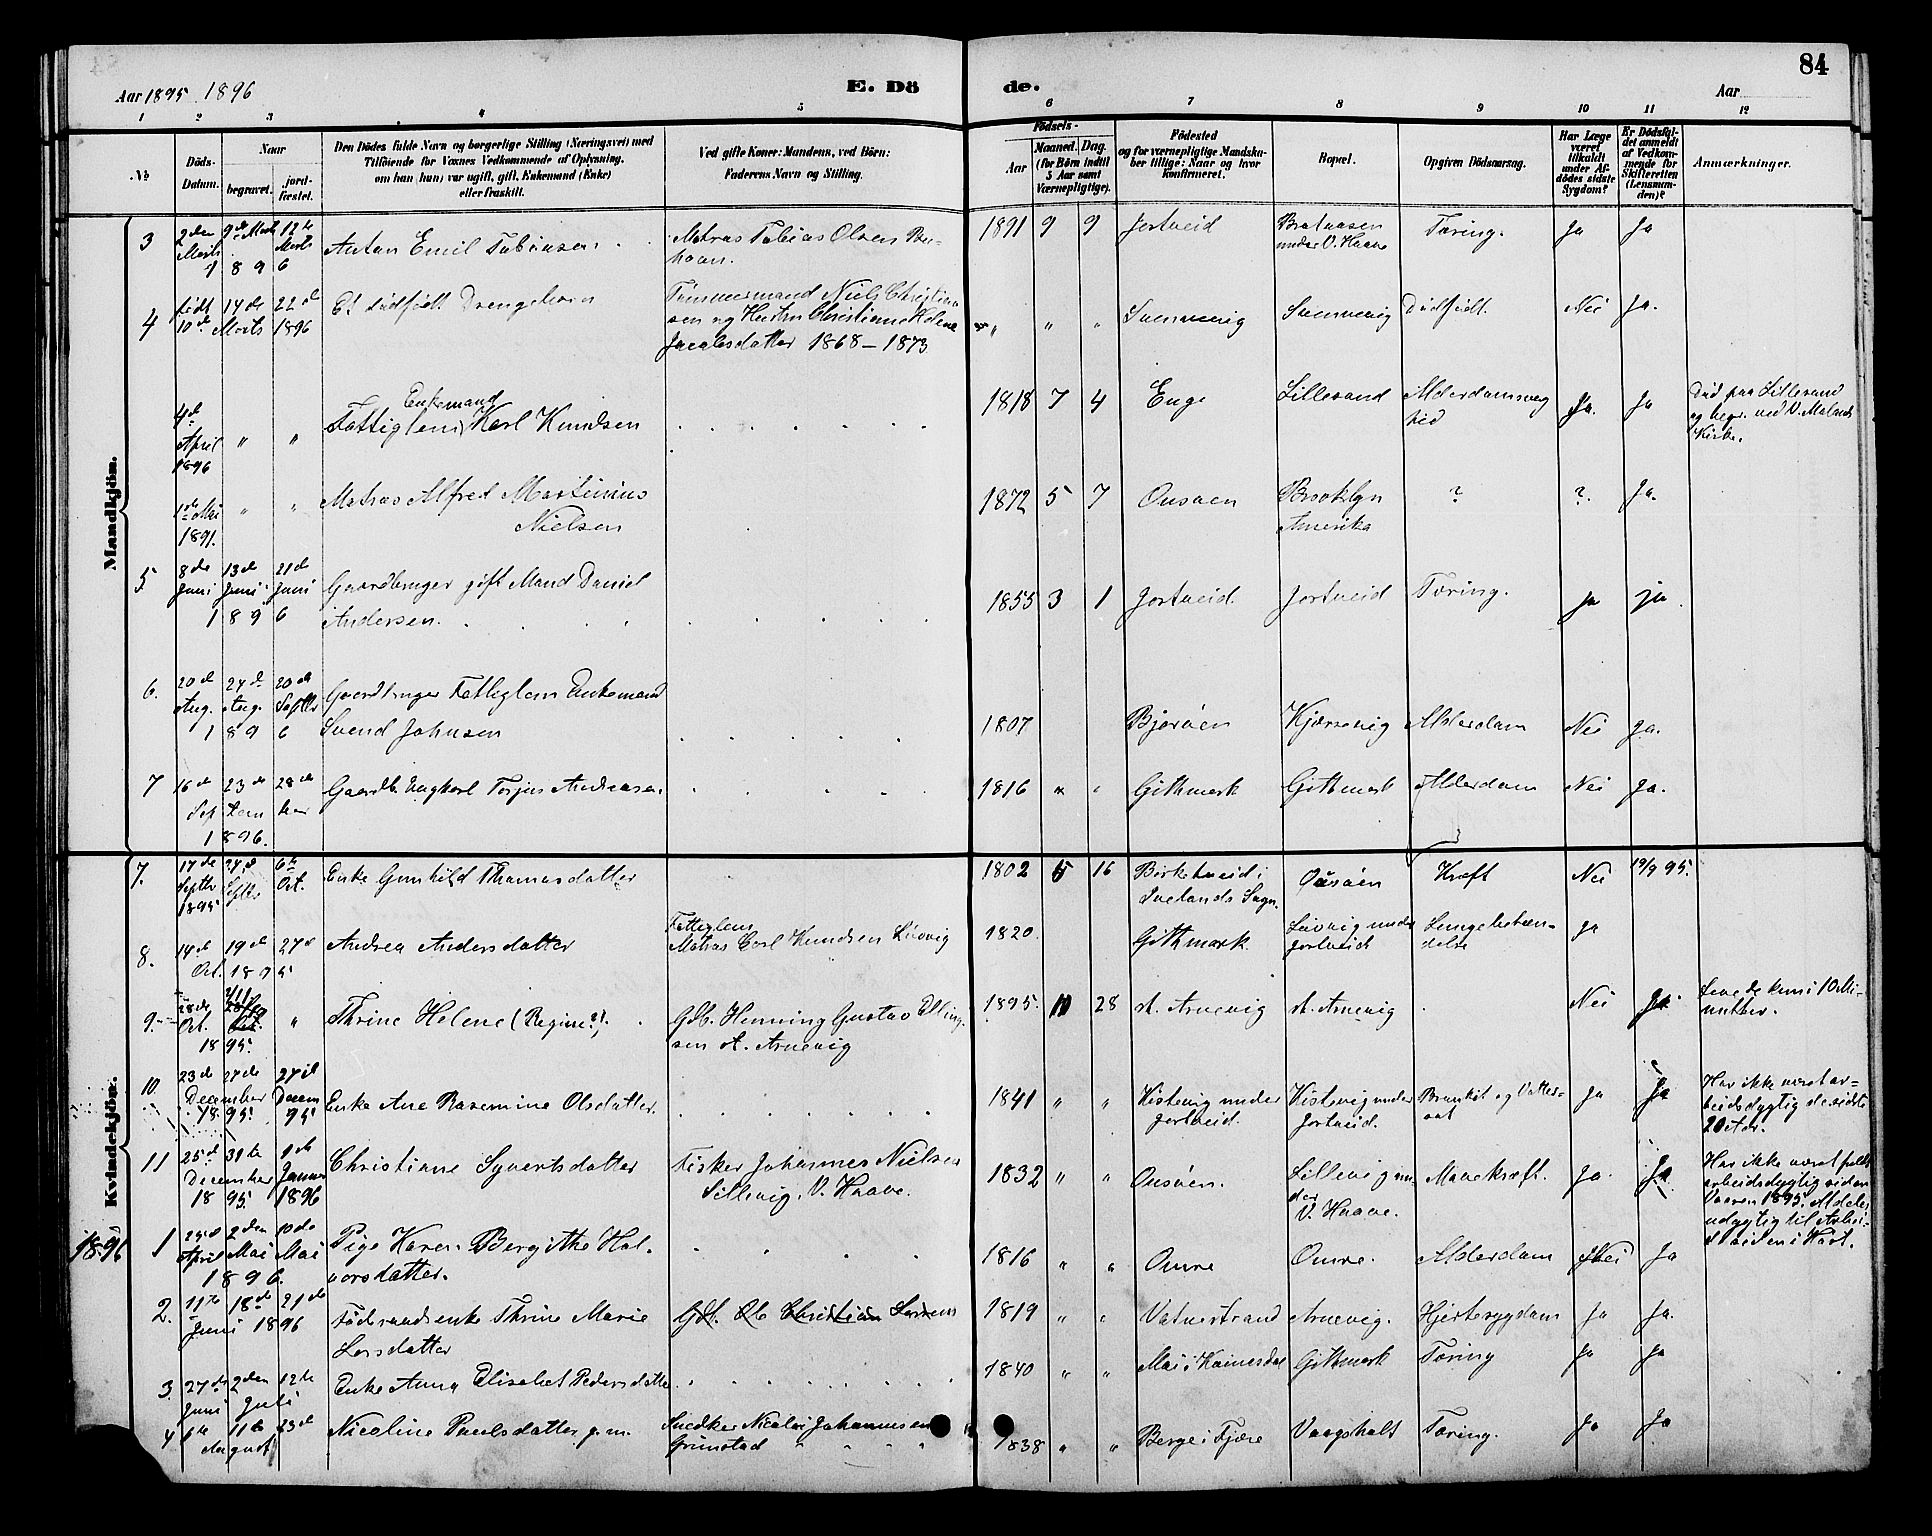 Aar 1895. 1896
E. Dö
de.
84
Aar
1 2 3 4 5 6 7 8 9 10 11 12
No
Döds-
Datum.
Naar
begravet.
jord-
fæstet.
Den Dödes fulde Navn og borgerlige Stilling (Næringsvei) med
Tilföiende for Voxnes Vedkommende af Oplysning,
om han (hun) var ugift, gift, Enkemand (Enke)
eller fraskilt.
Ved gifte Koner: Mandens, ved Börn:
Faderens Navn og Stilling.
Födsels-
Aar
Maaned. Dag.
(for Börn indtil
5 Aar samt
Værnepligtige).
Födested
og for værnepligtige Mandska-
ber tillige: Naar og hvor
konfirmeret.
Bopæl.
Opgiven Dödsaarsag.
Har Læge
været
tilkaldt
under Af-
dödes sidste
Sygdom?
Er Dödsfal-
det anmeldt
af Vedkom-
mende for
Skifteretten
(Lensman-
den)?
Anmærkninger.
Mandkjön.
3 2den Marts 9de Marts 12te Marts 1896 Anton Emil Tobiassen Matros Tobias Olsen 1891 9 9 Jortveid Brataasen under V. Haave Tæring. Ja Ja
4 født 10de Marts 14de 22de 1896 Et dødfødt Drengebarn Tømmermand Niels Christian-
sen og Hustru Christianne Helene
Jacobsdatter 1868 – 1873 " " " Dødfødt. Nei Ja.
4de April 1896 " " Enkemand
Fattiglem Karl Knudsen 1818 7 4 Enge Lillesand Alderdomssvag
hed Ja. Ja Død paa Lillesand
og begr. ved V. Molands
Kirke.
1ste Mai 1891. " " Matros Alfred Martinius
Nielsen 1872 5 7 Ousøen Brooklyn
Amerika ? ? Ja.
5 8de Juni 13de Juni 21de Juni 1896 Gaardbruger gift Mand Daniel
Andersen. 1855 3 1 Jortveid. Jortveid Tæring. Ja ja
6. 20de Aug. 24de Aug. 20de Septbr 1896 Gaardbruger Fattiglem Enkemand
Svend Johnsen 1807 Bjorøen Kjærsevig Alderdom Nei ja.
7 16de 23de 28de September 1896. Gaardb. Ungkarl Torjus Andreasen 1816 " " Gitmark Gitmark Alderdom Nei Ja.
Kvindekjön.
7. 17de Septbr 1895 24de Septbr 6te Oct. Enke Gunhild Thomasdatter 1802 5 16 Birketveid i
Ivelands Sogn. Ousøen Kræft Nei 19/9 95.
8. 14de 19de 27de Oct. 1895 Andrea Andersdatter Fattiglem
Matros Carl Knudsen Løvvig 1820. Gitmark. Løvvig under
Jortveid Lungebetæn-
delse Ja
9. 28de Oct. 1895. " Thrine Helene (Regine?) Gdb. Henning Gustav Elling-
sen st. Arnevig 1895. 10 28 st. Arnevig st. Arnevig Nei Ja. Levede kun i 10 Mi-
nutter.
10 23de 27de 27de December 1895. Decem 95 Enke Ane Rasemine Olsdatter. 1841 " " Kistevig under
Jortveid. Kistevig under
Jortveid. Bronkit og Vatter-
sot Ja Ja Har ikke været ar-
beidsdygtig de sidste
20 Aar.
11 25de 31te December 1895. 1ste Januar 1896 Christiane Syvertsdatter Fisker Johannes Nielsen
Lillevig, V. Haave. 1832 " " Ousøen. Lillevig un-
der
V. Haave. Mavekræft. Ja. Ja Har ikke været fuldt
arbeidsdygtig siden
Vaaren 1895. Aldeles
udygtig til Arbei-
de siden i Høst.
1896
1 April 2den Mai 10de Mai 1896. Pige Karen Bergithe Hal-
vorsdatter. 1816 " " Omre Omre. Alderdom Nei Ja
2. 11te 18de 21de Juni 1896 Føderaadsenke Thrine Marie
Larsdatter Gdb. Ole Christian 1819 " " Vatnestrand Arnevig. Hjertesygdom Ja Ja.
3. 27de Juni 2den 12te Juli Enke Anna Elisabet Pedersdatter 1840 " " Gitmark Tæring Ja Ja
4 11te 23de August Nicoline Paulsdatter g.m. Snedker Nicolai Johannesen
Grimstad 1838 " " Berge i Fjære Vaagsholt Tæring. Ja Ja